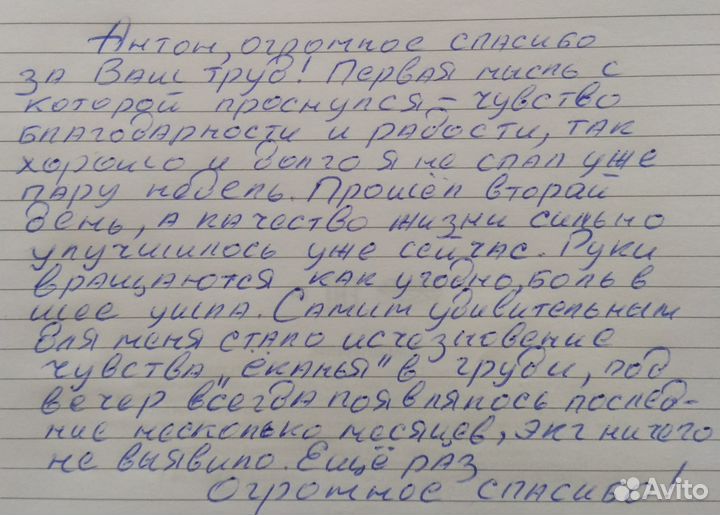 Антон, огромное спасибо
за Ваш труд! Первая мысль с
которой проснулся – чувство
благодарности и радости, так
хорошо и долго я не спал уже
пару недель. Прошёл второй
день, а качество жизни сильно
улучшилось уже сейчас. Руки
вращаются как угодно, боль в
шее ушла. Самым удивительным
для меня стало исчезновение
чувства „ёканья" в груди, под
вечер всегда появлялось послед-
ние несколько месяцев, экг ничего
не выявило. Ещё раз
Огромное спасибо!
Avito